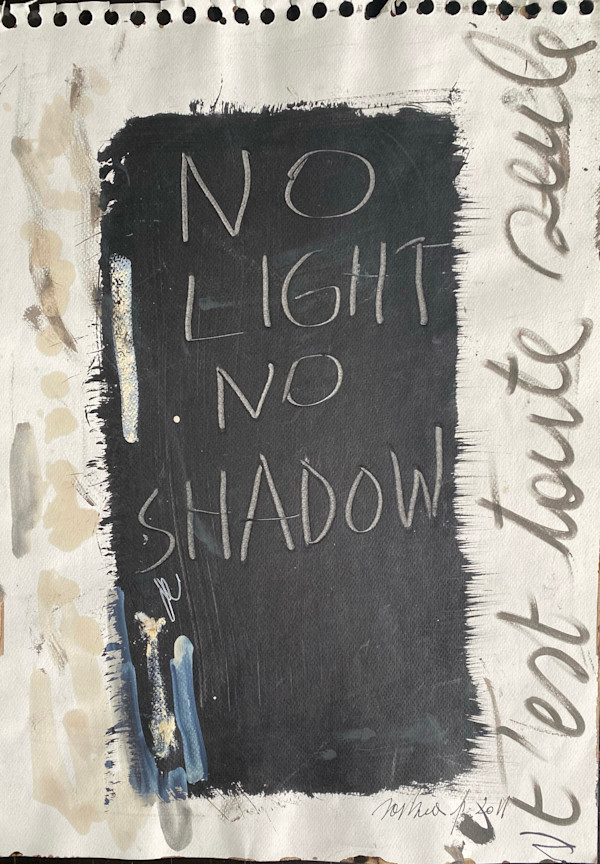 NO
LIGHT
NO
SHADOW
Test toute seule